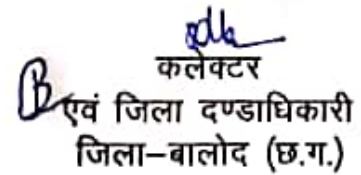 कलेक्टर
एवं जिला दण्डाधिकारी
जिला-बालोद (छ.ग.)